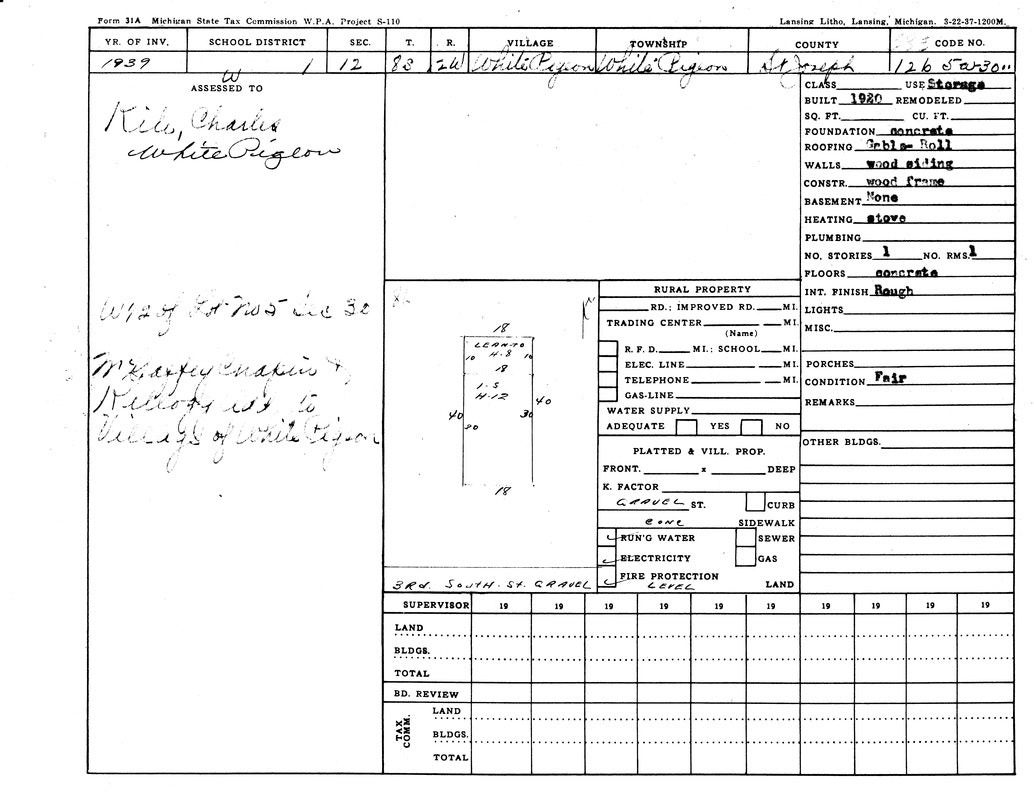 Form 31A Michigan State Tax Commission W.P.A. Project S-110
Lansing Litho, Lansing, Michigan. 3-22-37-1200M.
YR. OF INV. SCHOOL DISTRICT SEC. T. R. VILLAGE TOWNSHIP COUNTY CODE NO.
1939 W 1 12 8S 12W White Pigeon White Pigeon St Joseph 126
ASSESSED TO
Charles
White Pigeon
W 1/2 of Lot No 5 Sec 30
to
Village of White Pigeon
18
LEAN-TO
10 H-8 10
18
1-S
H-12
40 40
30
18
3Rd. SOUTH. ST. GRAVEL
RURAL PROPERTY
RD.; IMPROVED RD. MI.
TRADING CENTER MI.
(Name)
R. F. D. MI.; SCHOOL MI.
ELEC. LINE MI.
TELEPHONE MI.
GAS-LINE
WATER SUPPLY
ADEQUATE YES NO
PLATTED & VILL. PROP.
FRONT. x DEEP
K. FACTOR
GRAVEL ST. CURB
CONC SIDEWALK
RUN'G WATER SEWER
ELECTRICITY GAS
FIRE PROTECTION
LEVEL LAND
CLASS USE Storage
BUILT 1920 REMODELED
SQ. FT. CU. FT.
FOUNDATION concrete
ROOFING Gable- Roll
WALLS wood siding
CONSTR. wood frame
BASEMENT None
HEATING stove
PLUMBING
NO. STORIES 1 NO. RMS. 1
FLOORS concrete
INT. FINISH Rough
LIGHTS
MISC.
PORCHES
CONDITION Fair
REMARKS
OTHER BLDGS.
SUPERVISOR 19 19 19 19 19 19 19 19 19 19
LAND
BLDGS.
TOTAL
BD. REVIEW
TAX COMM.
LAND
BLDGS.
TOTAL